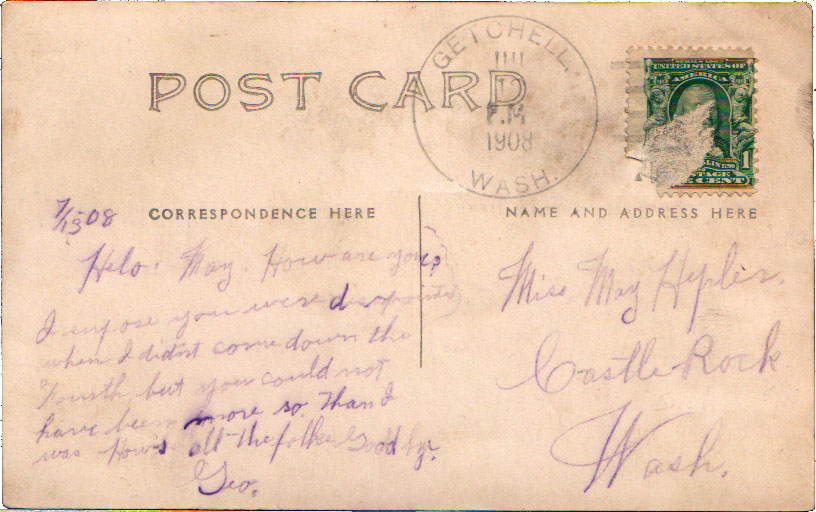 POST CARD
GETCHELL.
P.M
1908
WASH.
SERIES 1902
UNITED STATES OF
AMERICA
1
7/13-08
CORRESPONDENCE HERE
NAME AND ADDRESS HERE
Helo. May. How are you?
I supose you were disapointed
when I didnt come down the
Fourth, but you could not
have been more so. Than I
was How's all the folks Good by.
Geo.
Miss May Hepler.
Castle Rock
Wash.